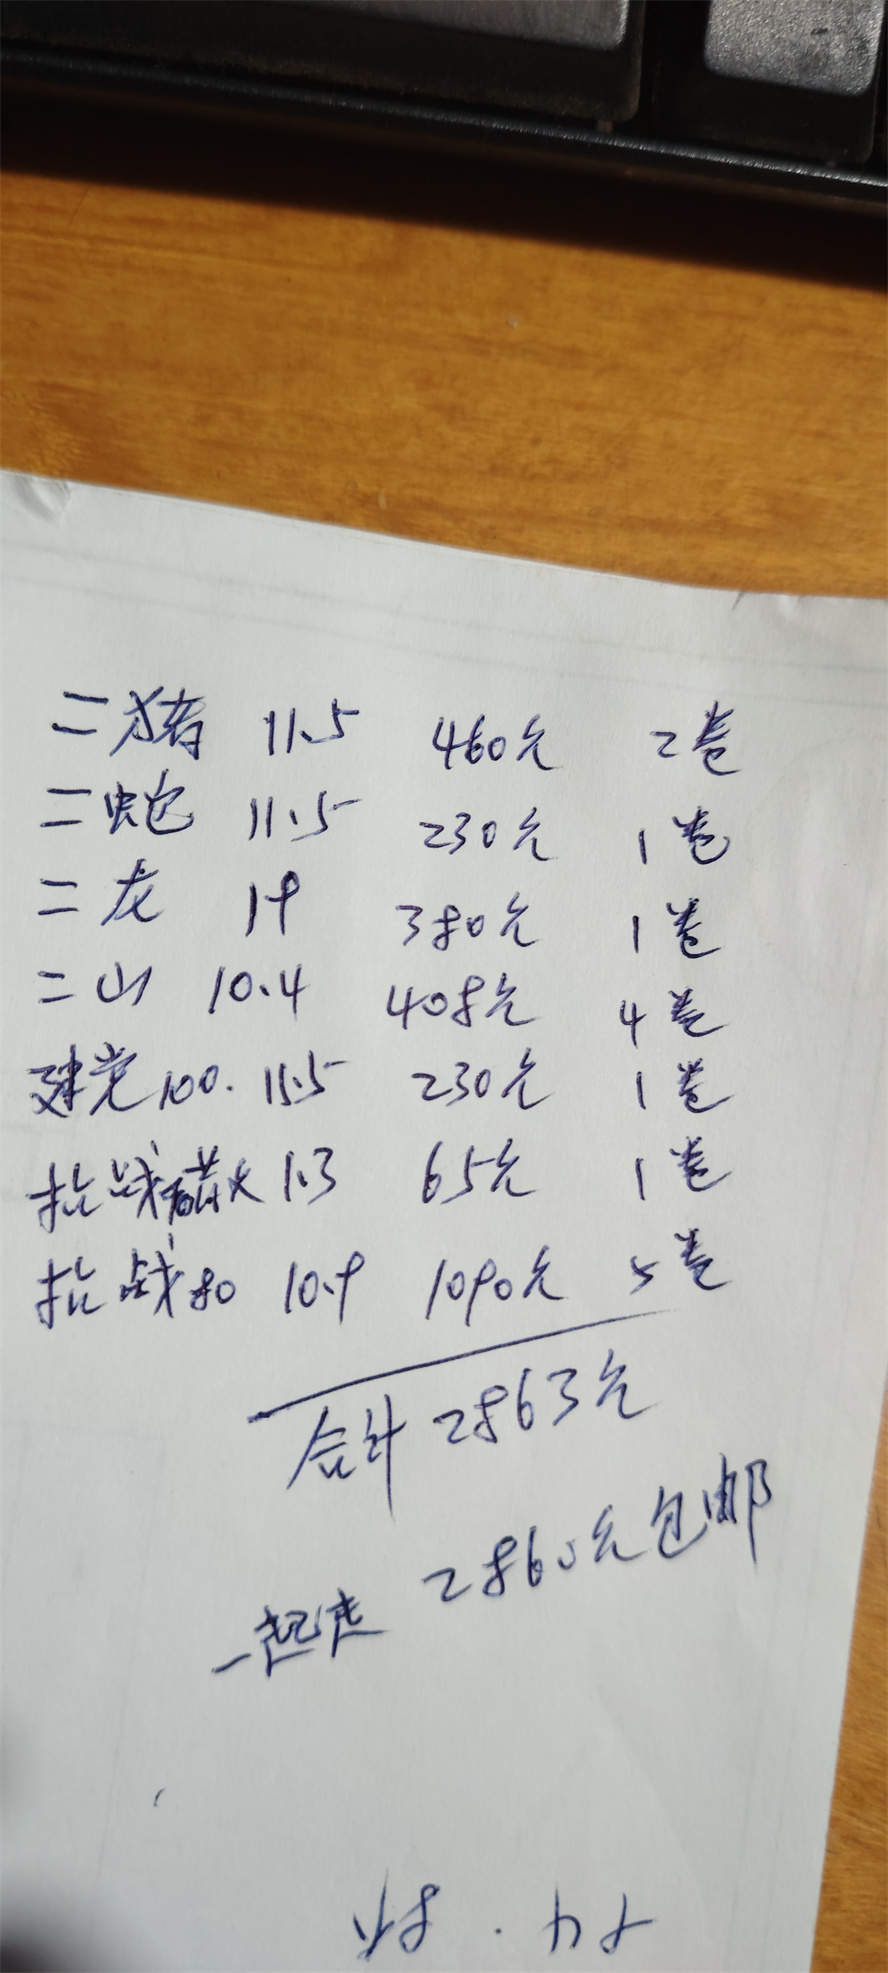 二猪 11.5 460元 2卷
二蛇 11.5 230元 1卷
二龙 19 380元 1卷
二山 10.4 408元 4卷
建党100. 11.5 230元 1卷
抗战 1.3 65元 1卷
抗战80 10.9 1090元 5卷
合计 2863元
一起走 2860元包邮